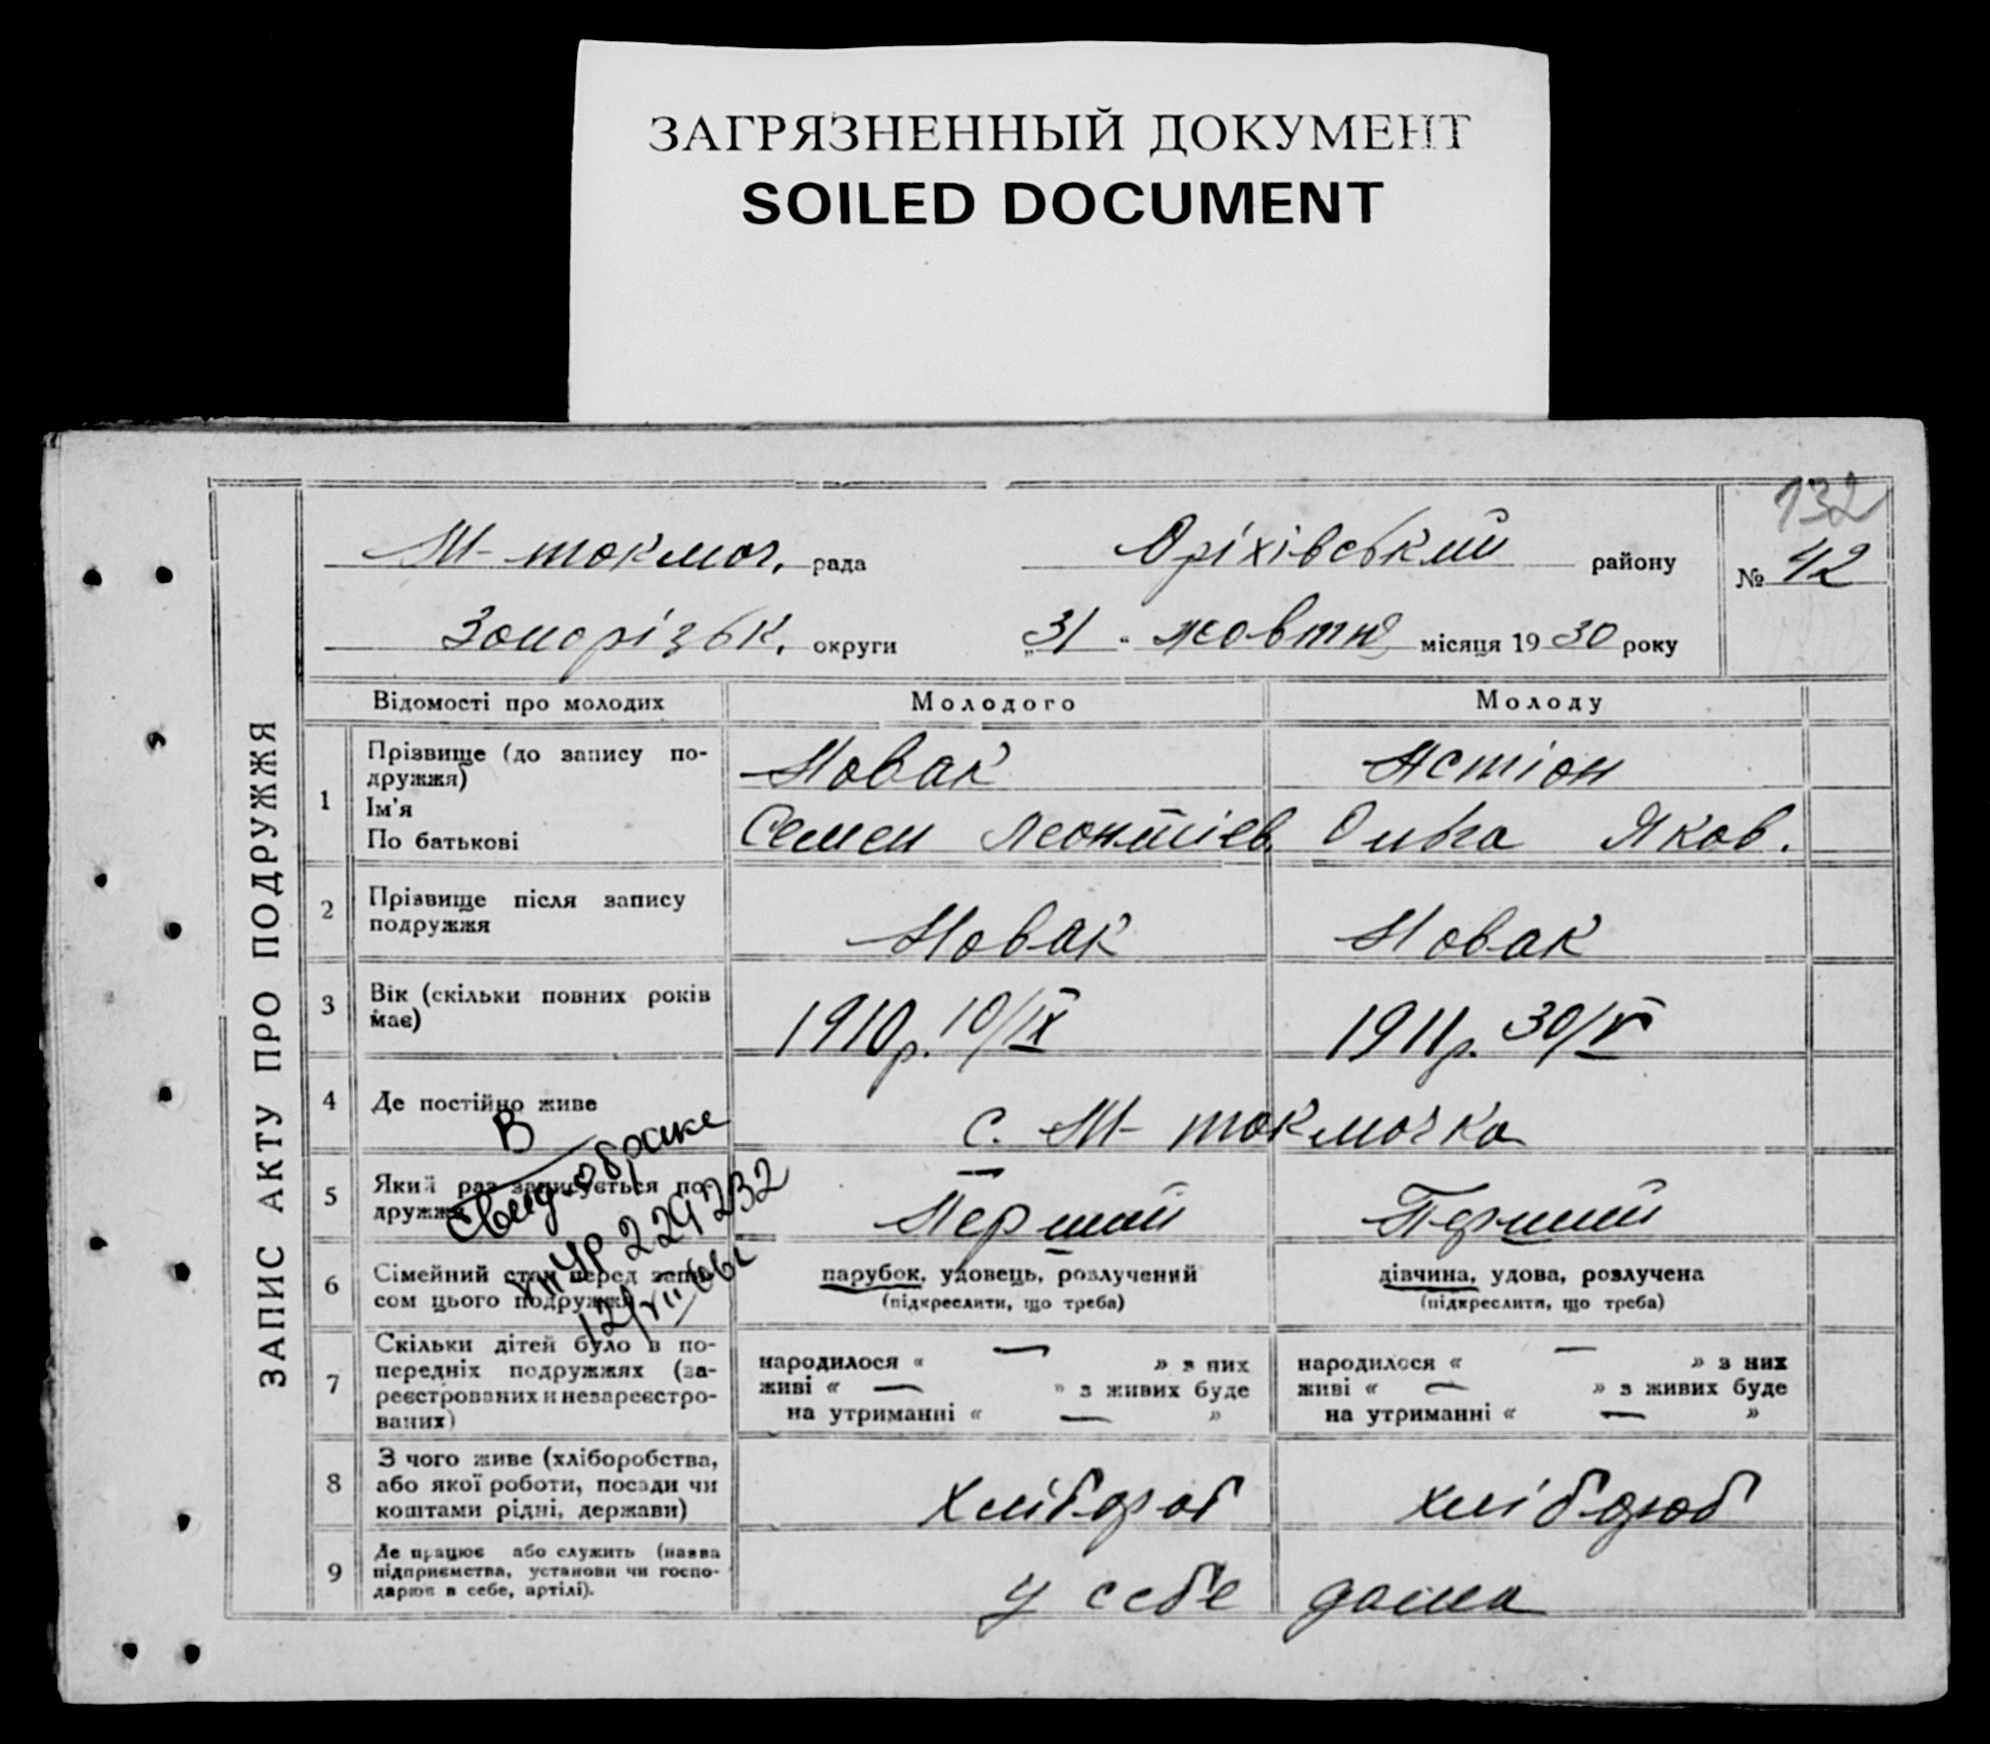 ЗАГРЯЗНЕННЫЙ ДОКУМЕНТ
SOILED DOCUMENT
132
М-токмач. рада Оріхівський району № 42
Запорізьк. округи „31" жовтня місяця 1930 року
ЗАПИС АКТУ ПРО ПОДРУЖЖЯ
Відомості про молодих Молодого Молоду
1 Прізвище (до запису по-
дружжя) Новак
Ім'я
По батькові Семен Леонтіев. Ольга Яков.
2 Прізвище після запису
подружжя Новак Новак
3 Вік (скільки повних років
має) 1910р. 10/IX 1911р. 30/V
4 Де постійно живе с. М-токмачка
В
Свид-о браке
УР 229232
5 Який раз записується по-
дружжя Перший Перший
6 Сімейний стан перед запи-
сом цього подружжя
парубок, удовець, розлучений
(підкреслити, що треба)
дівчина, удова, розлучена
(підкреслити, що треба)
7 Скільки дітей було в по-
передніх подружжях (за-
реєстрованих и незареєстро-
ваних)
народилося « — » з них
живі « — » з живих буде
на утриманні « — »
народилося « — » з них
живі « — » з живих буде
на утриманні « — »
8 З чого живе (хліборобства,
або якої роботи, посади чи
коштами рідні, держави) хлібороб хлібороб
9 Де працює або служить (назва
підприємства, установи чи госпо-
дарює в себе, артілі). у себе дома